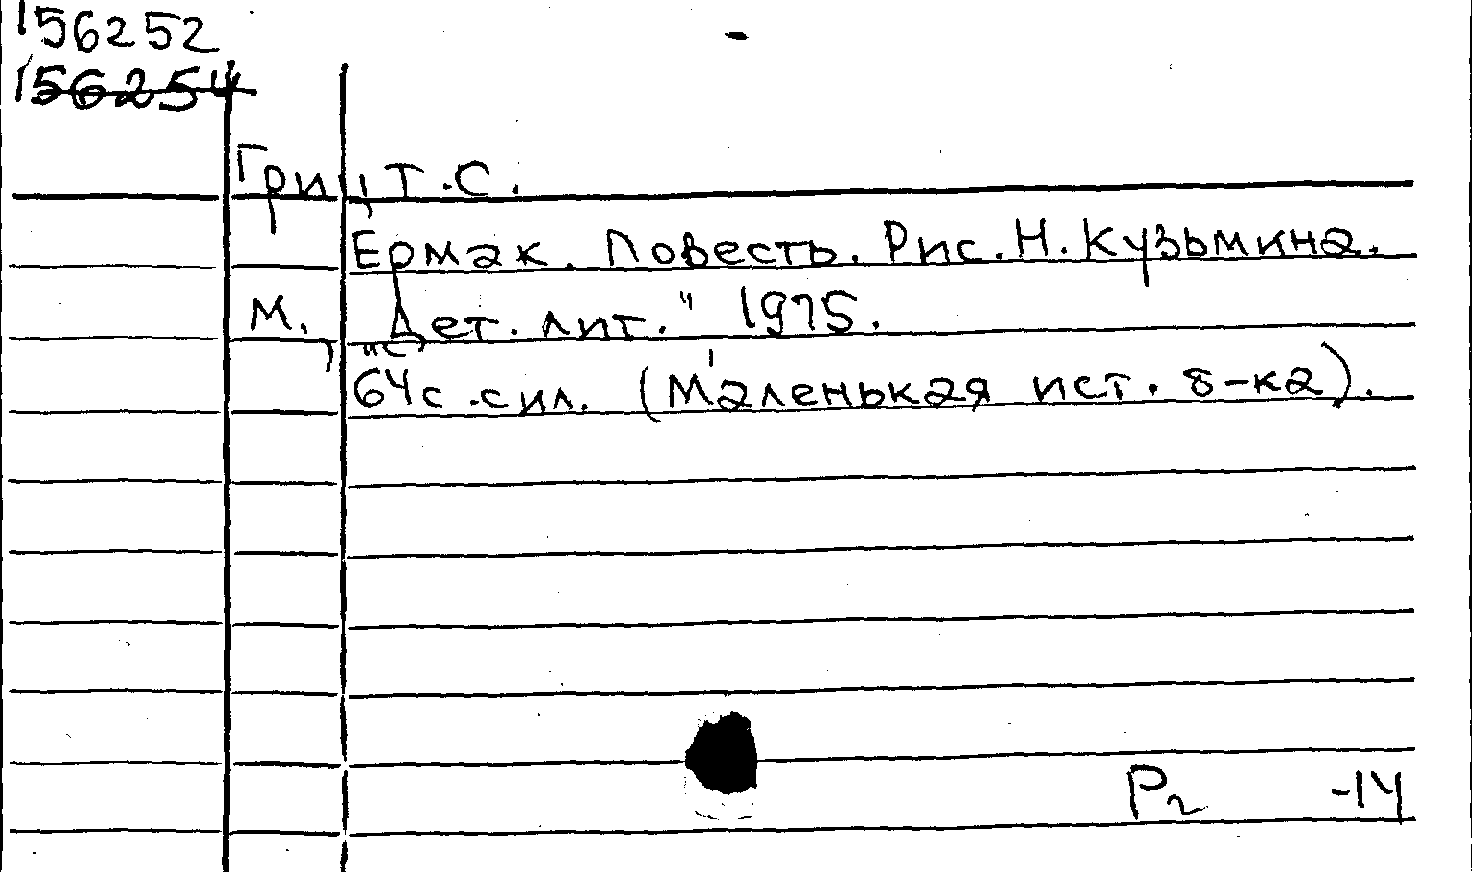 156252
156254
Гриц Т.С.
Ермак. Повесть. Рис. Н. Кузьмина.
М., "Дет. лит." 1975.
64с. с ил. (Маленькая ист. б-ка).
Р2 -14